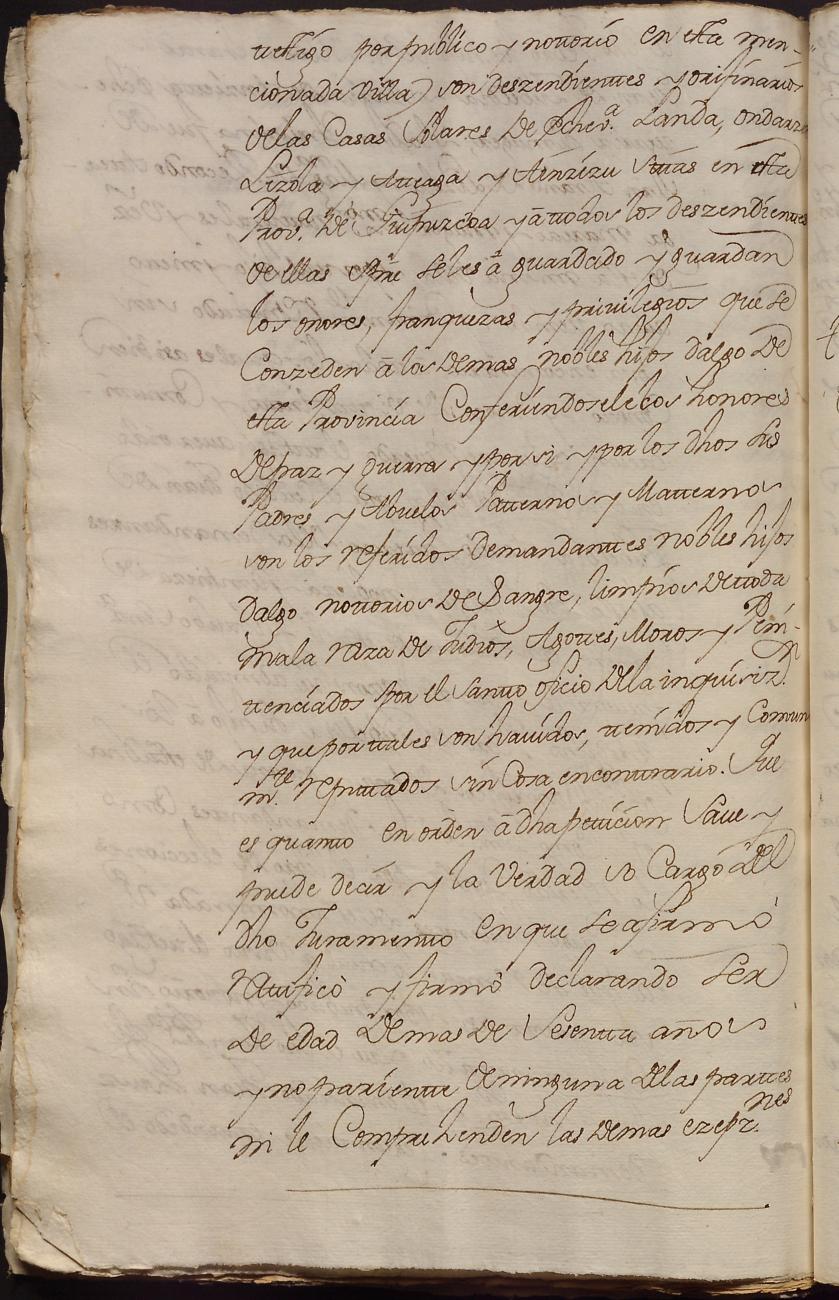 testigo por publico y nottorio en esta men-
cionada villa) son deszendientes y orijinarios
de las Casas Solares de Echev.a Landa, ondarza
Lizola y Atteaga y Ainzizu sittas en esta
Prov.a de Guipuzcoa y a ttodos los deszendientes
de ellas spre se les à guardado y guardan
los onores, franquezas y privilegios que se
Conzeden à los demas nobles hijos dalgo de
esta Provincia Confiriendoseles los honores
de paz y guerra y por si y por los dhos sus
Padres y Abuelos Patternos y Matternos
son los referidos demandanttes nobles hijos
dalgo nottorios de Sangre, limpios de ttoda
mala raza de Judios, Agottes, Moros y Peni-
tenciados por el Santto oficio de la inquisiz.n
y que por ttales son havidos, ttenidos y Comun
m.te reputtados sin Cosa en conttrario. Que
es quantto en orden à dha petticion Save y
puede decir y la Verdad so Cargo del
dho Juramentto en que se afirmò
rattificò y firmò declarando ser
de edad de mas de Sesentta años
y no parientte de ninguna de las parttes
ni le Comprehenden las demas ezepz.nes